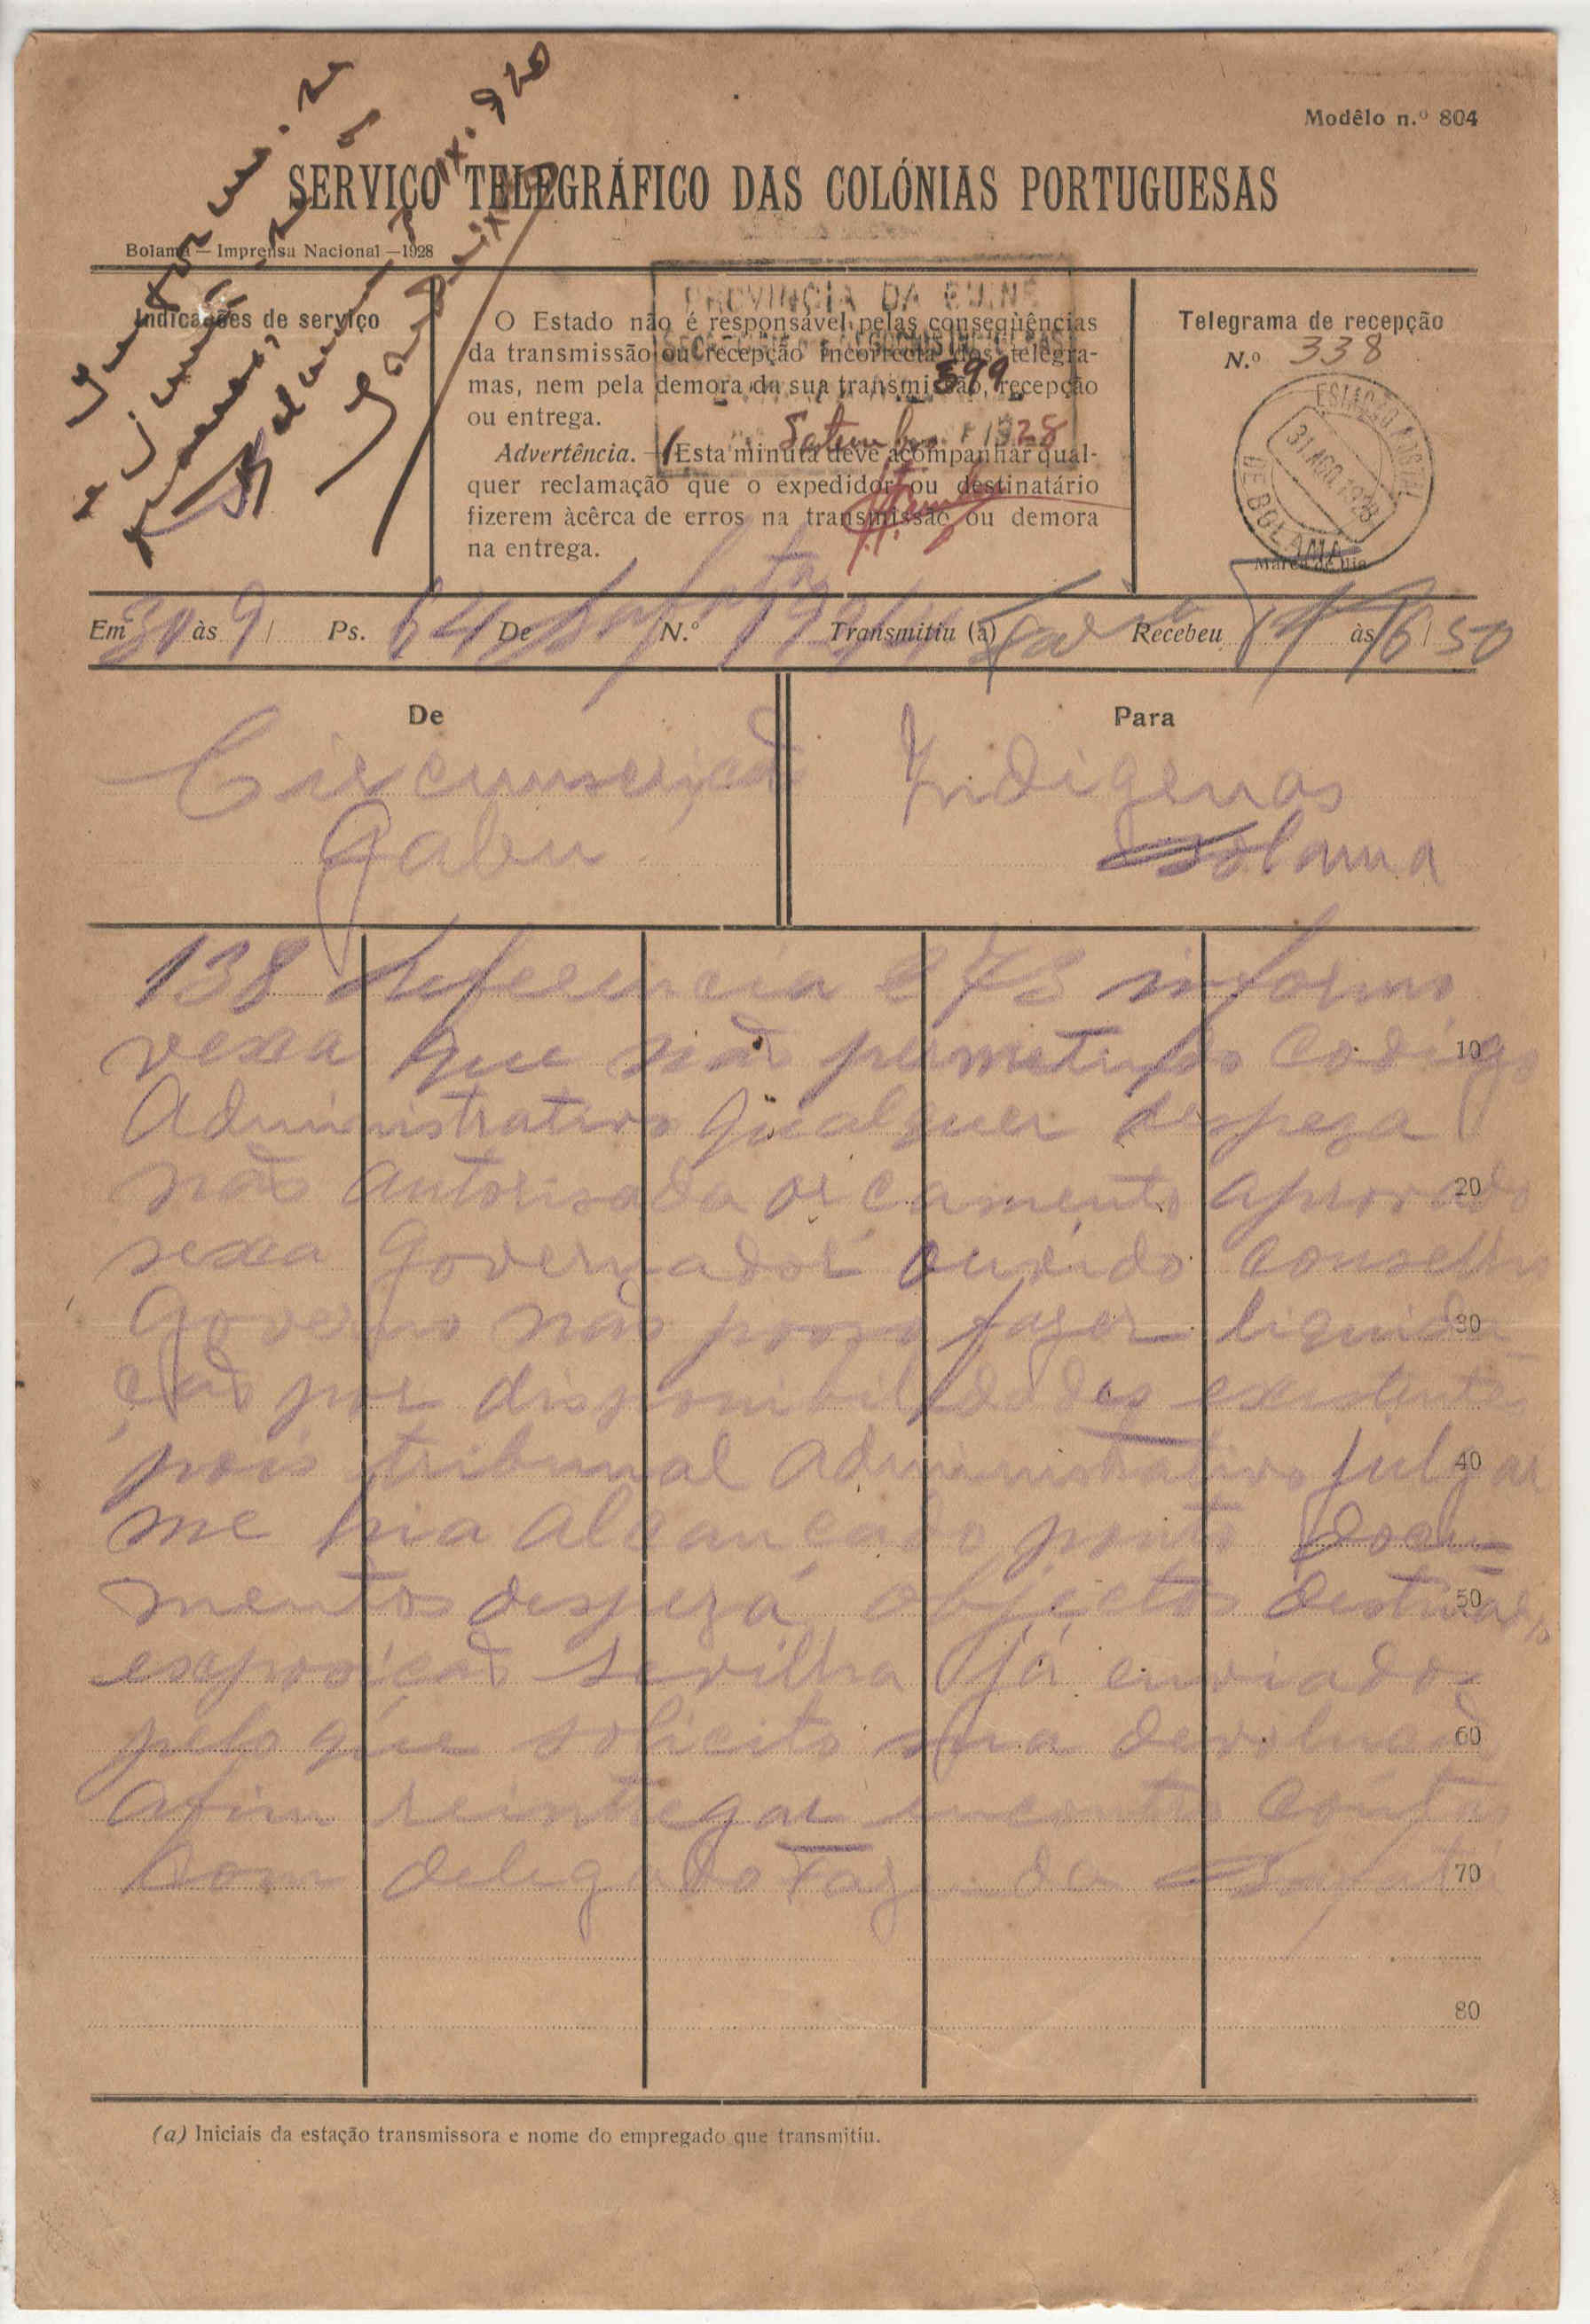 Modêlo n.º 804
SERVIÇO TELEGRÁFICO DAS COLÓNIAS PORTUGUESAS
Bolama — Imprensa Nacional — 1928
Indicações de serviço
O Estado não é responsável pelas conseqùências
da transmissão ou recepção incorrecta dos telegra-
mas, nem pela demora da sua transmissão, recepção
ou entrega.
Advertência. — Esta minuta deve acompanhar qual-
quer reclamação que o expedidor ou destinatário
fizerem àcêrca de erros na transmissão ou demora
na entrega.
PROVINCIA DA GUINÉ
599
Setembro 1928
Telegrama de recepção
N.º 338
ESTAÇÃO POSTAL
31 AGO. 1928
DE BOLAMA
Marca do dia
Em 30 às 9 Ps. 64 De N.º Transmitiu (a) Recebeu às 16 50
De
Circunscrição
Gabu
Para
Indigenas
Bolama
138 Referencia 273 informo
vexa que não permetindo codigo 10
Administrativo qualquer despeza
não autorisada orçamento aprovado 20
sexa Governador ouvido conselho
Governo não posso fazer liquida- 30
ção por disponibilidades existentes
pois tribunal Administrativo julgar 40
me hia alcançado ponto Docu-
mentos despeza objectos destinados 50
exposição sevilha já enviados
pelo que solicito sua devolução 60
afim reintregar encontro contas
com delegado Fazenda Bafatá 70
80
(a) Iniciais da estação transmissora e nome do empregado que transmitiu.